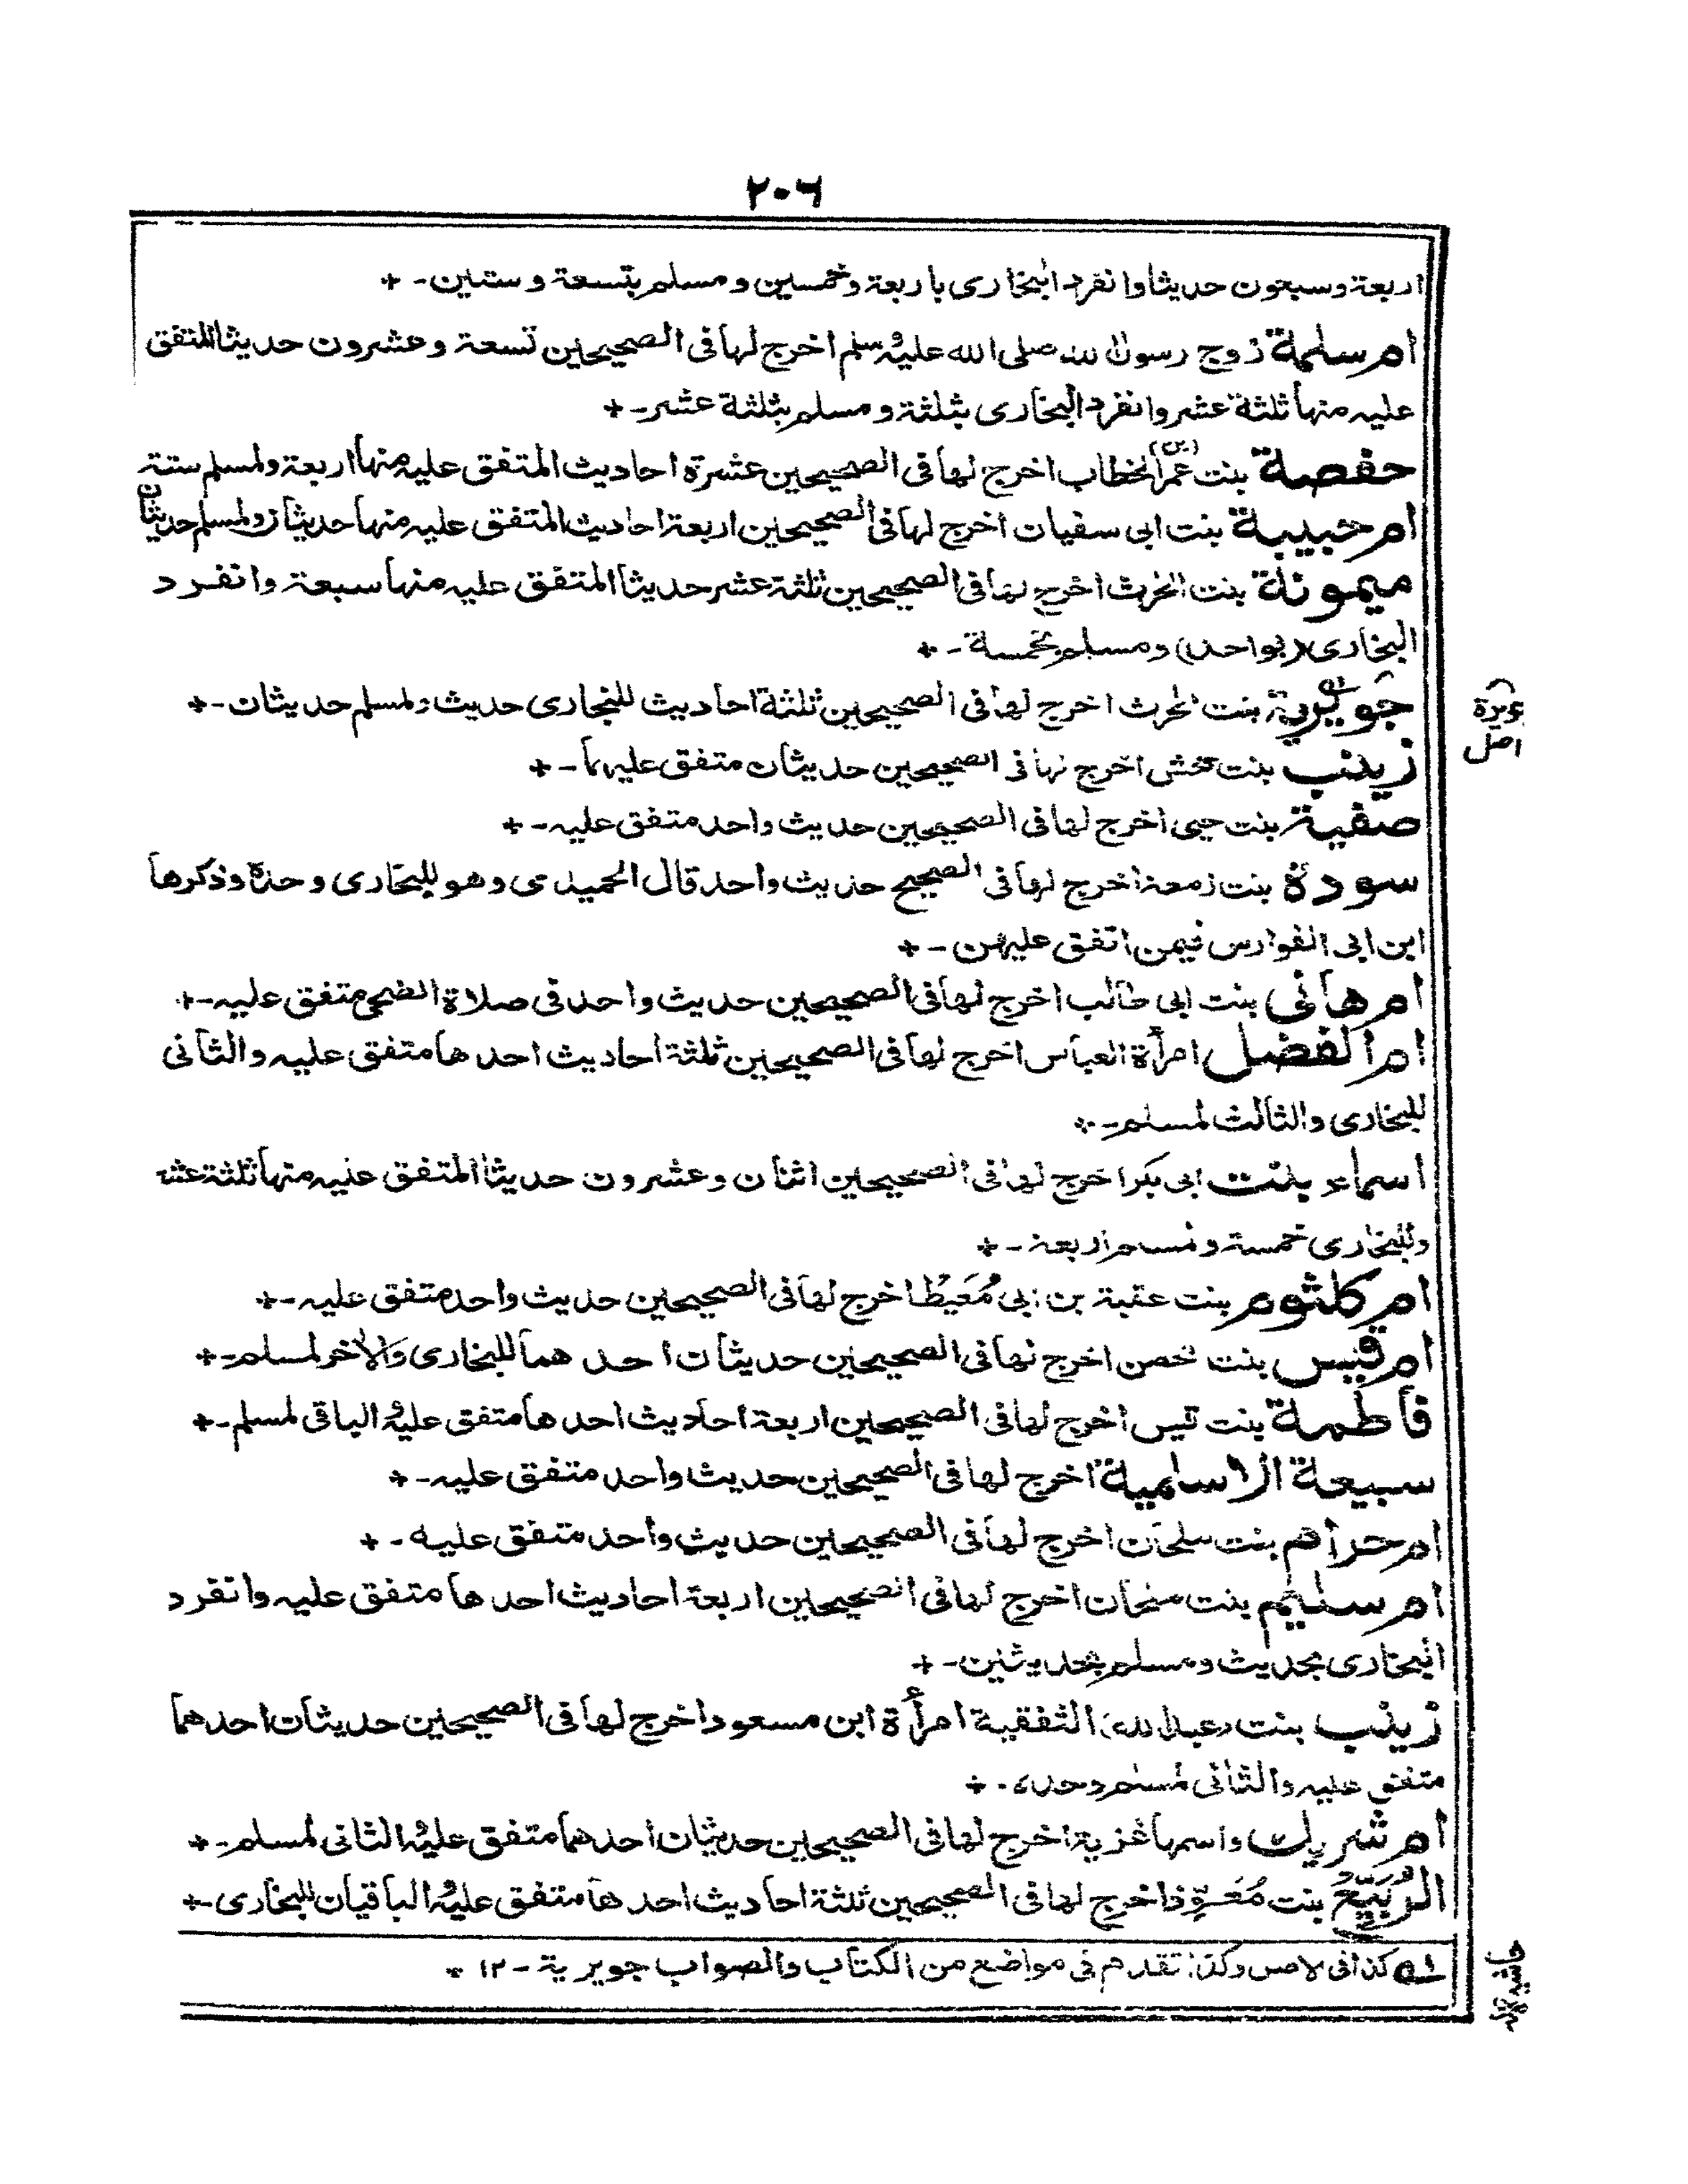 ٢٠٦
اربعة وسبعون حديثا وانفرد البخارى باربعة وخمسين ومسلم بتسعة وستين -
ام سلمة زوج رسول الله صلى الله عليه وسلم اخرج لها فى الصحيحين تسعة وعشرون حديثا المتفق
عليه منها ثلثة عشر وانفرد البخارى بثلثة ومسلم بثلثة عشر -
حفصة بنت عمر (بن) الخطاب اخرج لها فى الصحيحين عشرة احاديث المتفق عليه منها اربعة ولمسلم ستة
ام حبيبة بنت ابى سفيان اخرج لها فى الصحيحين اربعة احاديث المتفق عليه منها حديثان ولمسلم حديثان
ميمونة بنت الحرث اخرج لها فى الصحيحين ثلثة عشر حديثا المتفق عليه منها سبعة وانفرد
البخارى (بواحد) ومسلم بخمسة -
جويرية بنت الحرث اخرج لها فى الصحيحين ثلثة احاديث للبخارى حديث ولمسلم حديثان -
زينب بنت جحش اخرج لها فى الصحيحين حديثان متفق عليهما -
صفية بنت حيى اخرج لها فى الصحيحين حديث واحد متفق عليه -
سودة بنت زمعة اخرج لها فى الصحيح حديث واحد قال الحميدى وهو للبخارى وحده وذكرها
ابن ابى الفوارس فيمن اتفق عليهن -
ام هانى بنت ابى طالب اخرج لها فى الصحيحين حديث واحد فى صلاة الضحى متفق عليه -
ام الفضل امرأة العباس اخرج لها فى الصحيحين ثلثة احاديث احدها متفق عليه والثانى
للبخارى والثالث لمسلم -
اسماء بنت ابى بكر اخرج لها فى الصحيحين اثنان وعشرون حديثا المتفق عليه منها ثلثة عشر
وللبخارى خمسة ولمسلم اربعة -
ام كلثوم بنت عقبة بن ابى مُعَيْط اخرج لها فى الصحيحين حديث واحد متفق عليه -
ام قيس بنت محصن اخرج لها فى الصحيحين حديثان احدهما للبخارى والاخر لمسلم -
فاطمة بنت قيس اخرج لها فى الصحيحين اربعة احاديث احدها متفق عليه والباقى لمسلم -
سبيعة الاسلمية اخرج لها فى الصحيحين حديث واحد متفق عليه -
ام حرام بنت ملحان اخرج لها فى الصحيحين حديث واحد متفق عليه -
ام سليم بنت ملحان اخرج لها فى الصحيحين اربعة احاديث احدها متفق عليه وانفرد
البخارى بحديث ومسلم بحديثين -
زينب بنت (عبد الله) الثقفية امرأة ابن مسعود اخرج لها فى الصحيحين حديثان احدهما
متفق عليه والثانى لمسلم وحده -
ام شريك واسمها غزية اخرج لها فى الصحيحين حديثان احدهما متفق عليه والثانى لمسلم -
الرُّبَيِّع بنت مُعَوِّذ اخرج لها فى الصحيحين ثلثة احاديث احدها متفق عليه والباقيان للبخارى -
كذا فى الاصل وكذا تقدم فى مواضع من الكتاب والصواب جويرية - ١٢